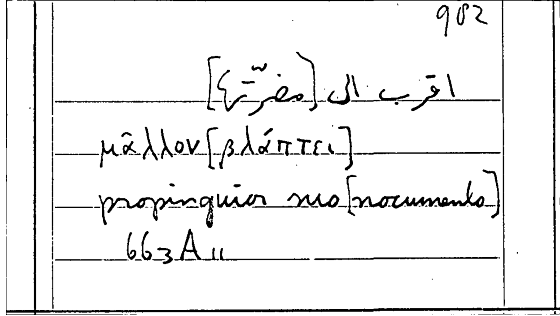 اقرب الى
μᾶλλον [βλάπτει]
propinquior suo [nocumento]
663A11